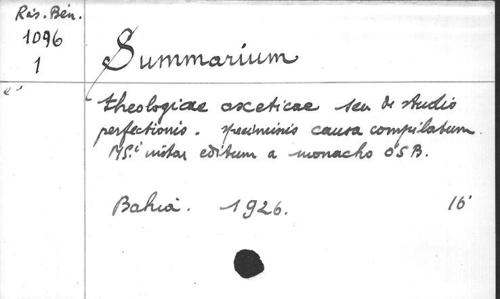 Rés. Bén.
1096
1
Summarium
theologiae asceticae seu de studio
perfectionis. speciminis causa compilatum
MS.i instar editum a monacho OSB.
Bahia. 1926. 16°